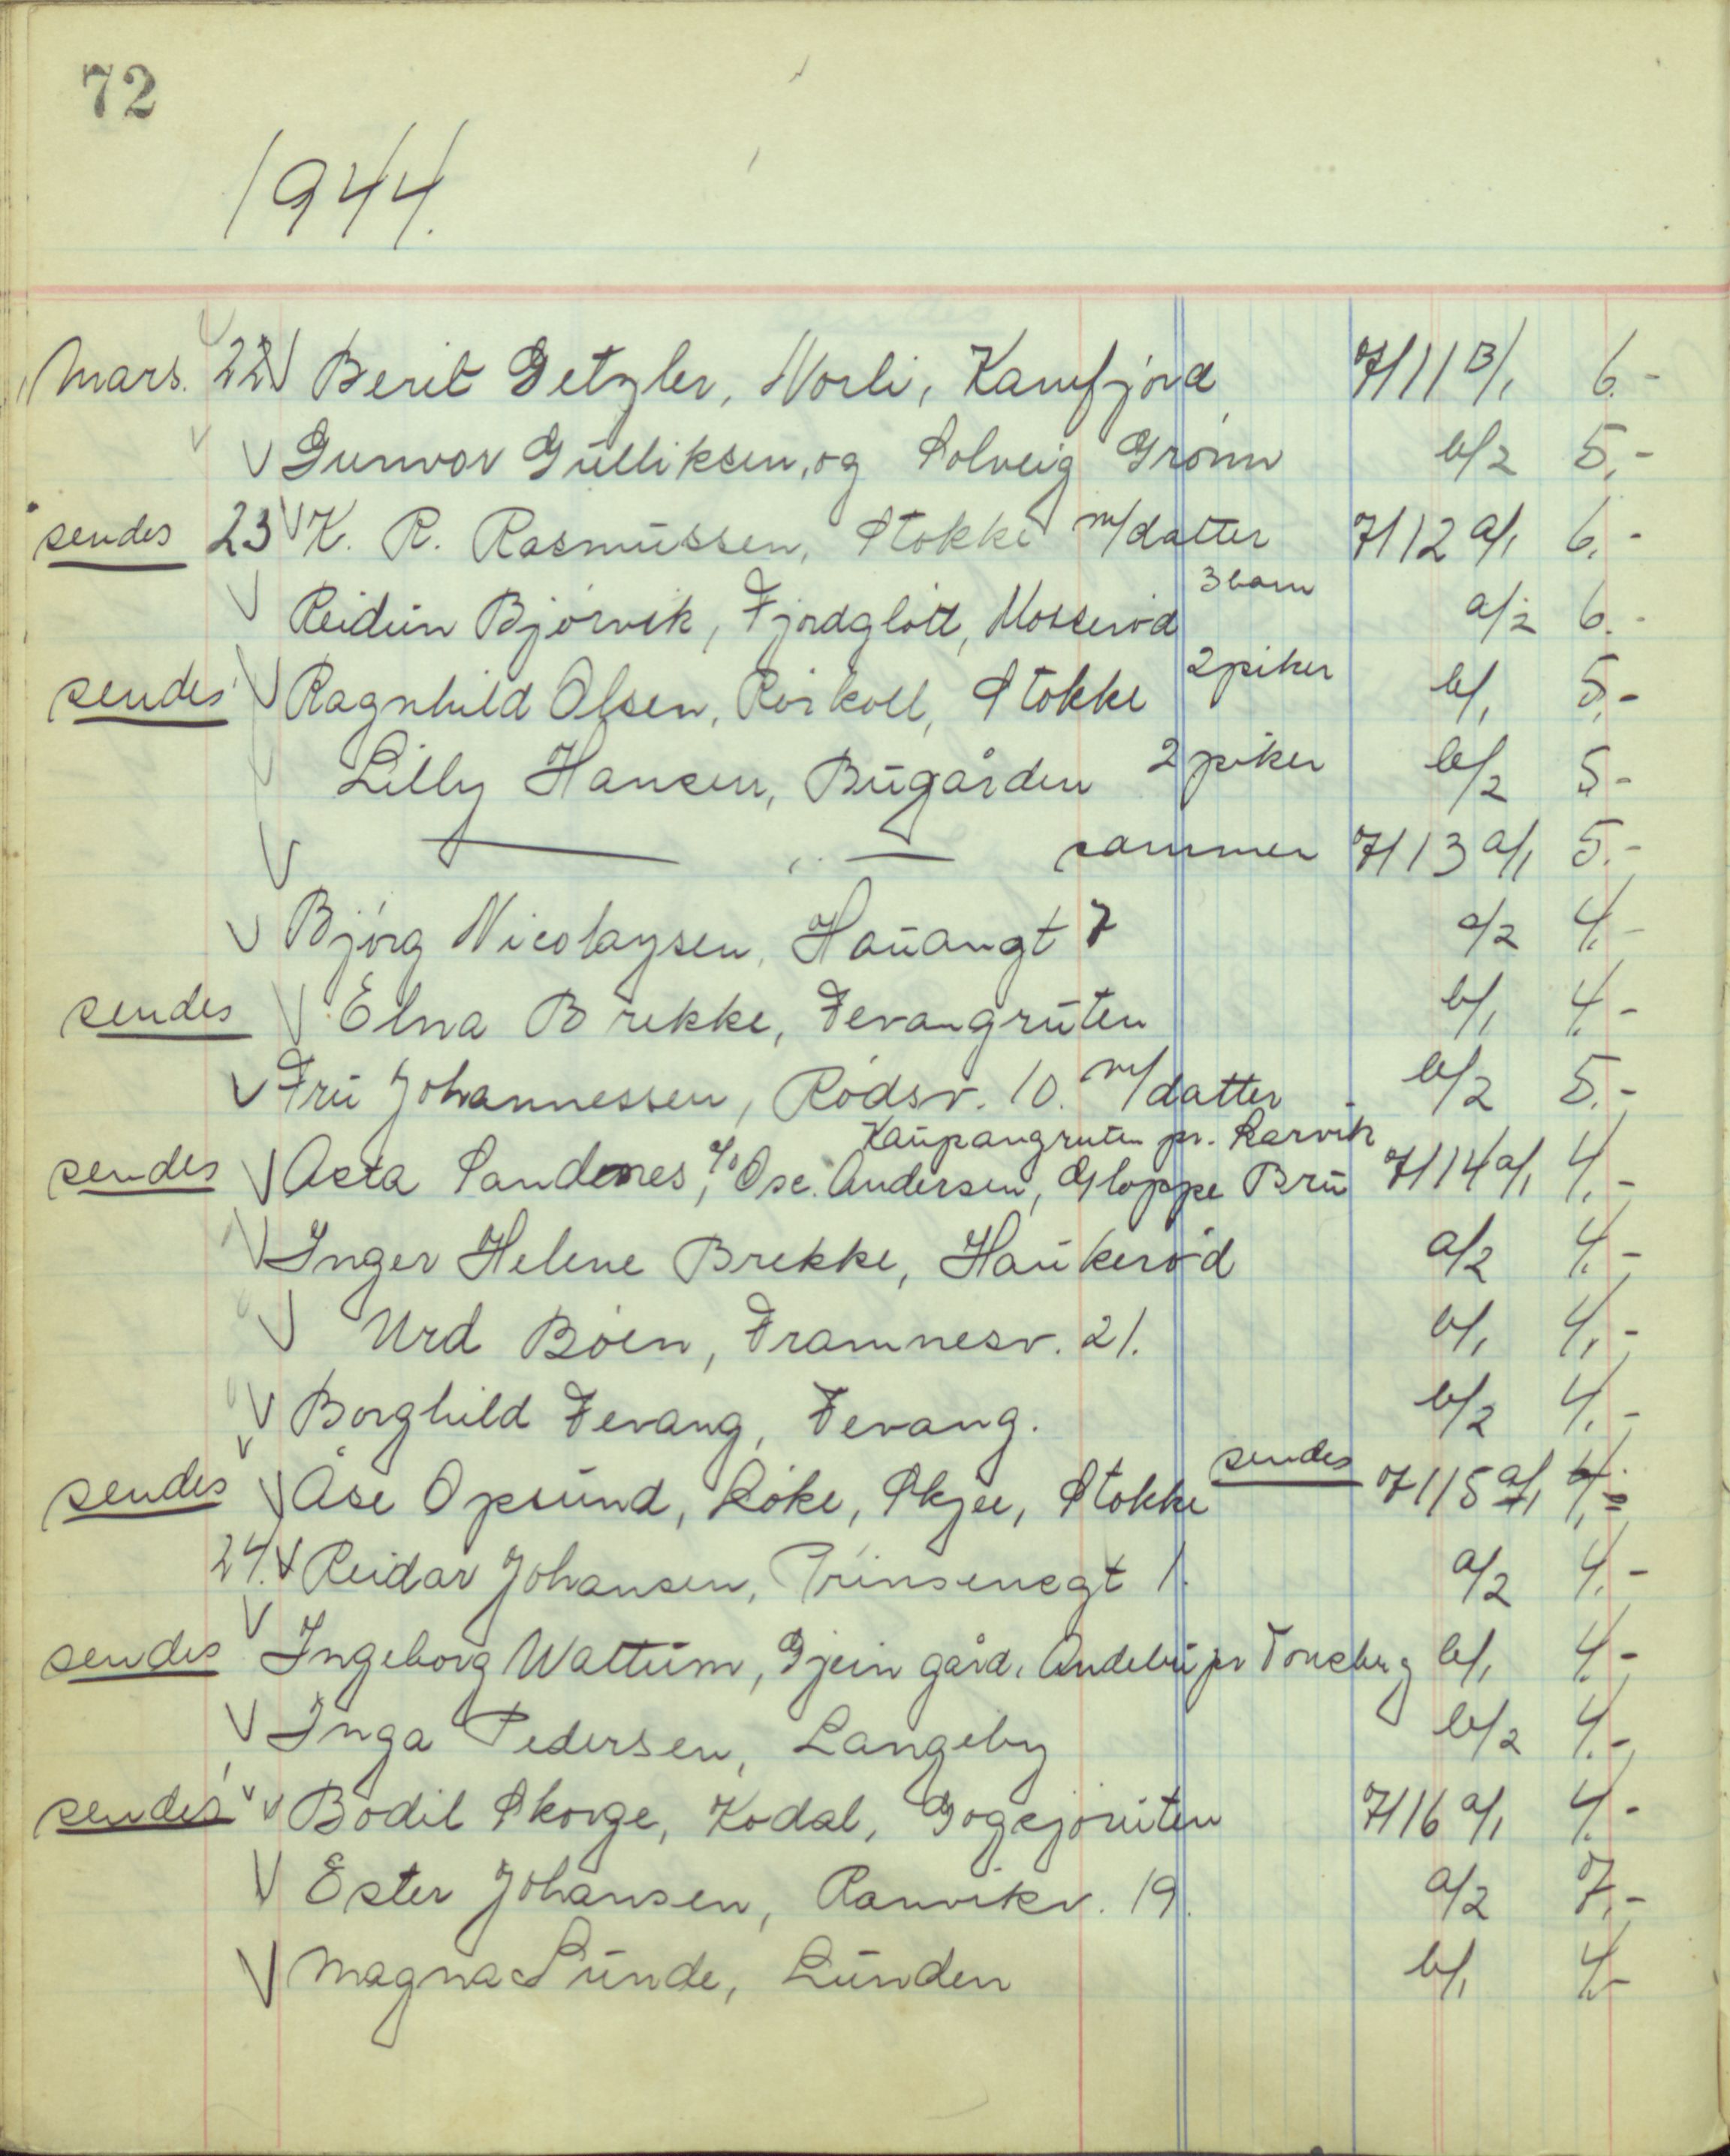 72
1944.
Mars. 22 Berit Getzler, Norli, Kamfjord 7111 B/1 6.-
Gunvor Gulliksen, og Solveig Grønn b/2 5.-
sendes 23 K. R. Rasmussen, Stokke m/datter 7112 a/1 6.-
3 barn
Reidun Bjørvik, Fjordgløtt, Mosserød a/2 6.-
sendes Ragnhild Olsen, Rørkoll, Stokke 2 piker b/1 5.-
Lilly Hansen, Bugården 2 piker b/2 5.-
— „ — sammen 7113 a/1 5.-
Bjørg Nicolaysen, Hauangt 7 a/2 4.-
sendes Elna Brekke, Fevangruten b/1 4.-
Fru Johannessen, Rødsv. 10. m/datter b/2 5.-
Kaupangruten pr. Larvik
sendes Asta Sandenes, c/o Osc. Andersen, Gloppe Bru 7114 a/1 4.-
Inger Helene Brekke, Haukerød a/2 4.-
Urd Bøen, Framnesv. 21. b/1 4.-
Borghild Fevang, Fevang. b/2 4.-
sendes Åse Opsund, Løke, Skjee, Stokke sendes 7115 a/1 4.-
24. Reidar Johansen, Prinsensgt 1. a/2 4.-
sendes Ingeborg Wattum, Gjein gård, Andebu pr Tønsberg b/1 4.-
Inga Pedersen, Langeby b/2 4.-
sendes Bodil Skorge, Kodal, Gogsjøruten 7116 a/1 4.-
Ester Johansen, Ranvikv. 19. a/2 7.-
Magna Sunde, Lunden b/1 4.-